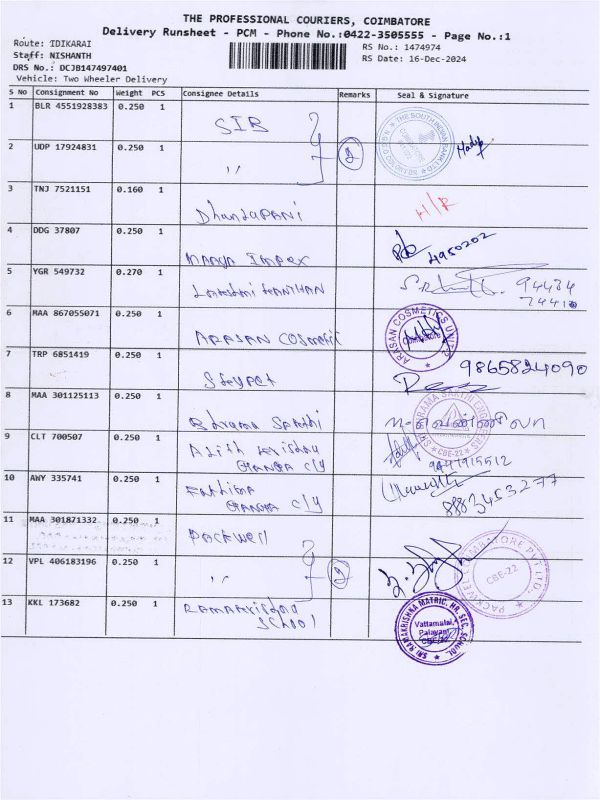 THE PROFESSIONAL COURIERS, COIMBATORE
Delivery Runsheet - PCM - Phone No.:0422-3505555 - Page No.:1
Route: IDIKARAI
RS No.: 1474974
Staff: NISHANTH
RS Date: 16-Dec-2024
DRS No.: DCJB147497401
Vehicle: Two Wheeler Delivery
S No Consignment No Weight PCS Consignee Details Remarks Seal & Signature
1 BLR 4551928383 0.250 1 SIB
THE SOUTH INDIAN BANK LTD
2 UDP 17924831 0.250 1 ,, 2
3 TNJ 7521151 0.160 1 Dhandapani H/R
4 DDG 37807 0.250 1 Impex 4950202
5 YGR 549732 0.270 1 Lakshmi 94434
74410
6 MAA 867055071 0.250 1 ARASAN COSMETIC
ARASAN COSMETICS UNIT
7 TRP 6851419 0.250 1 9865824090
8 MAA 301125113 0.250 1 Sakthi
CBE-22
9 CLT 700507 0.250 1 Ajith Krishna
Ganga cly
9441915512
10 AWY 335741 0.250 1 Fathima
Ganga cly
8883453277
11 MAA 301871332 0.250 1 Packwell
12 VPL 406183196 0.250 1 ,, 2
CBE-22
13 KKL 173682 0.250 1 Ramakrishna
School
SRI RAMAKRISHNA MATRIC. HR. SEC. SCHOOL
Vattamalai,
Palayam
CBE-22